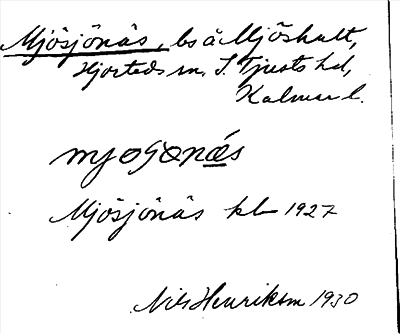 Mjösjönäs, bs å Mjöshult,
Hjorteds sn, S. Tjusts hd,
Kalmar l.
mjøsønæs
Mjösjönäs kb 1927
Nils Henrikson 1930